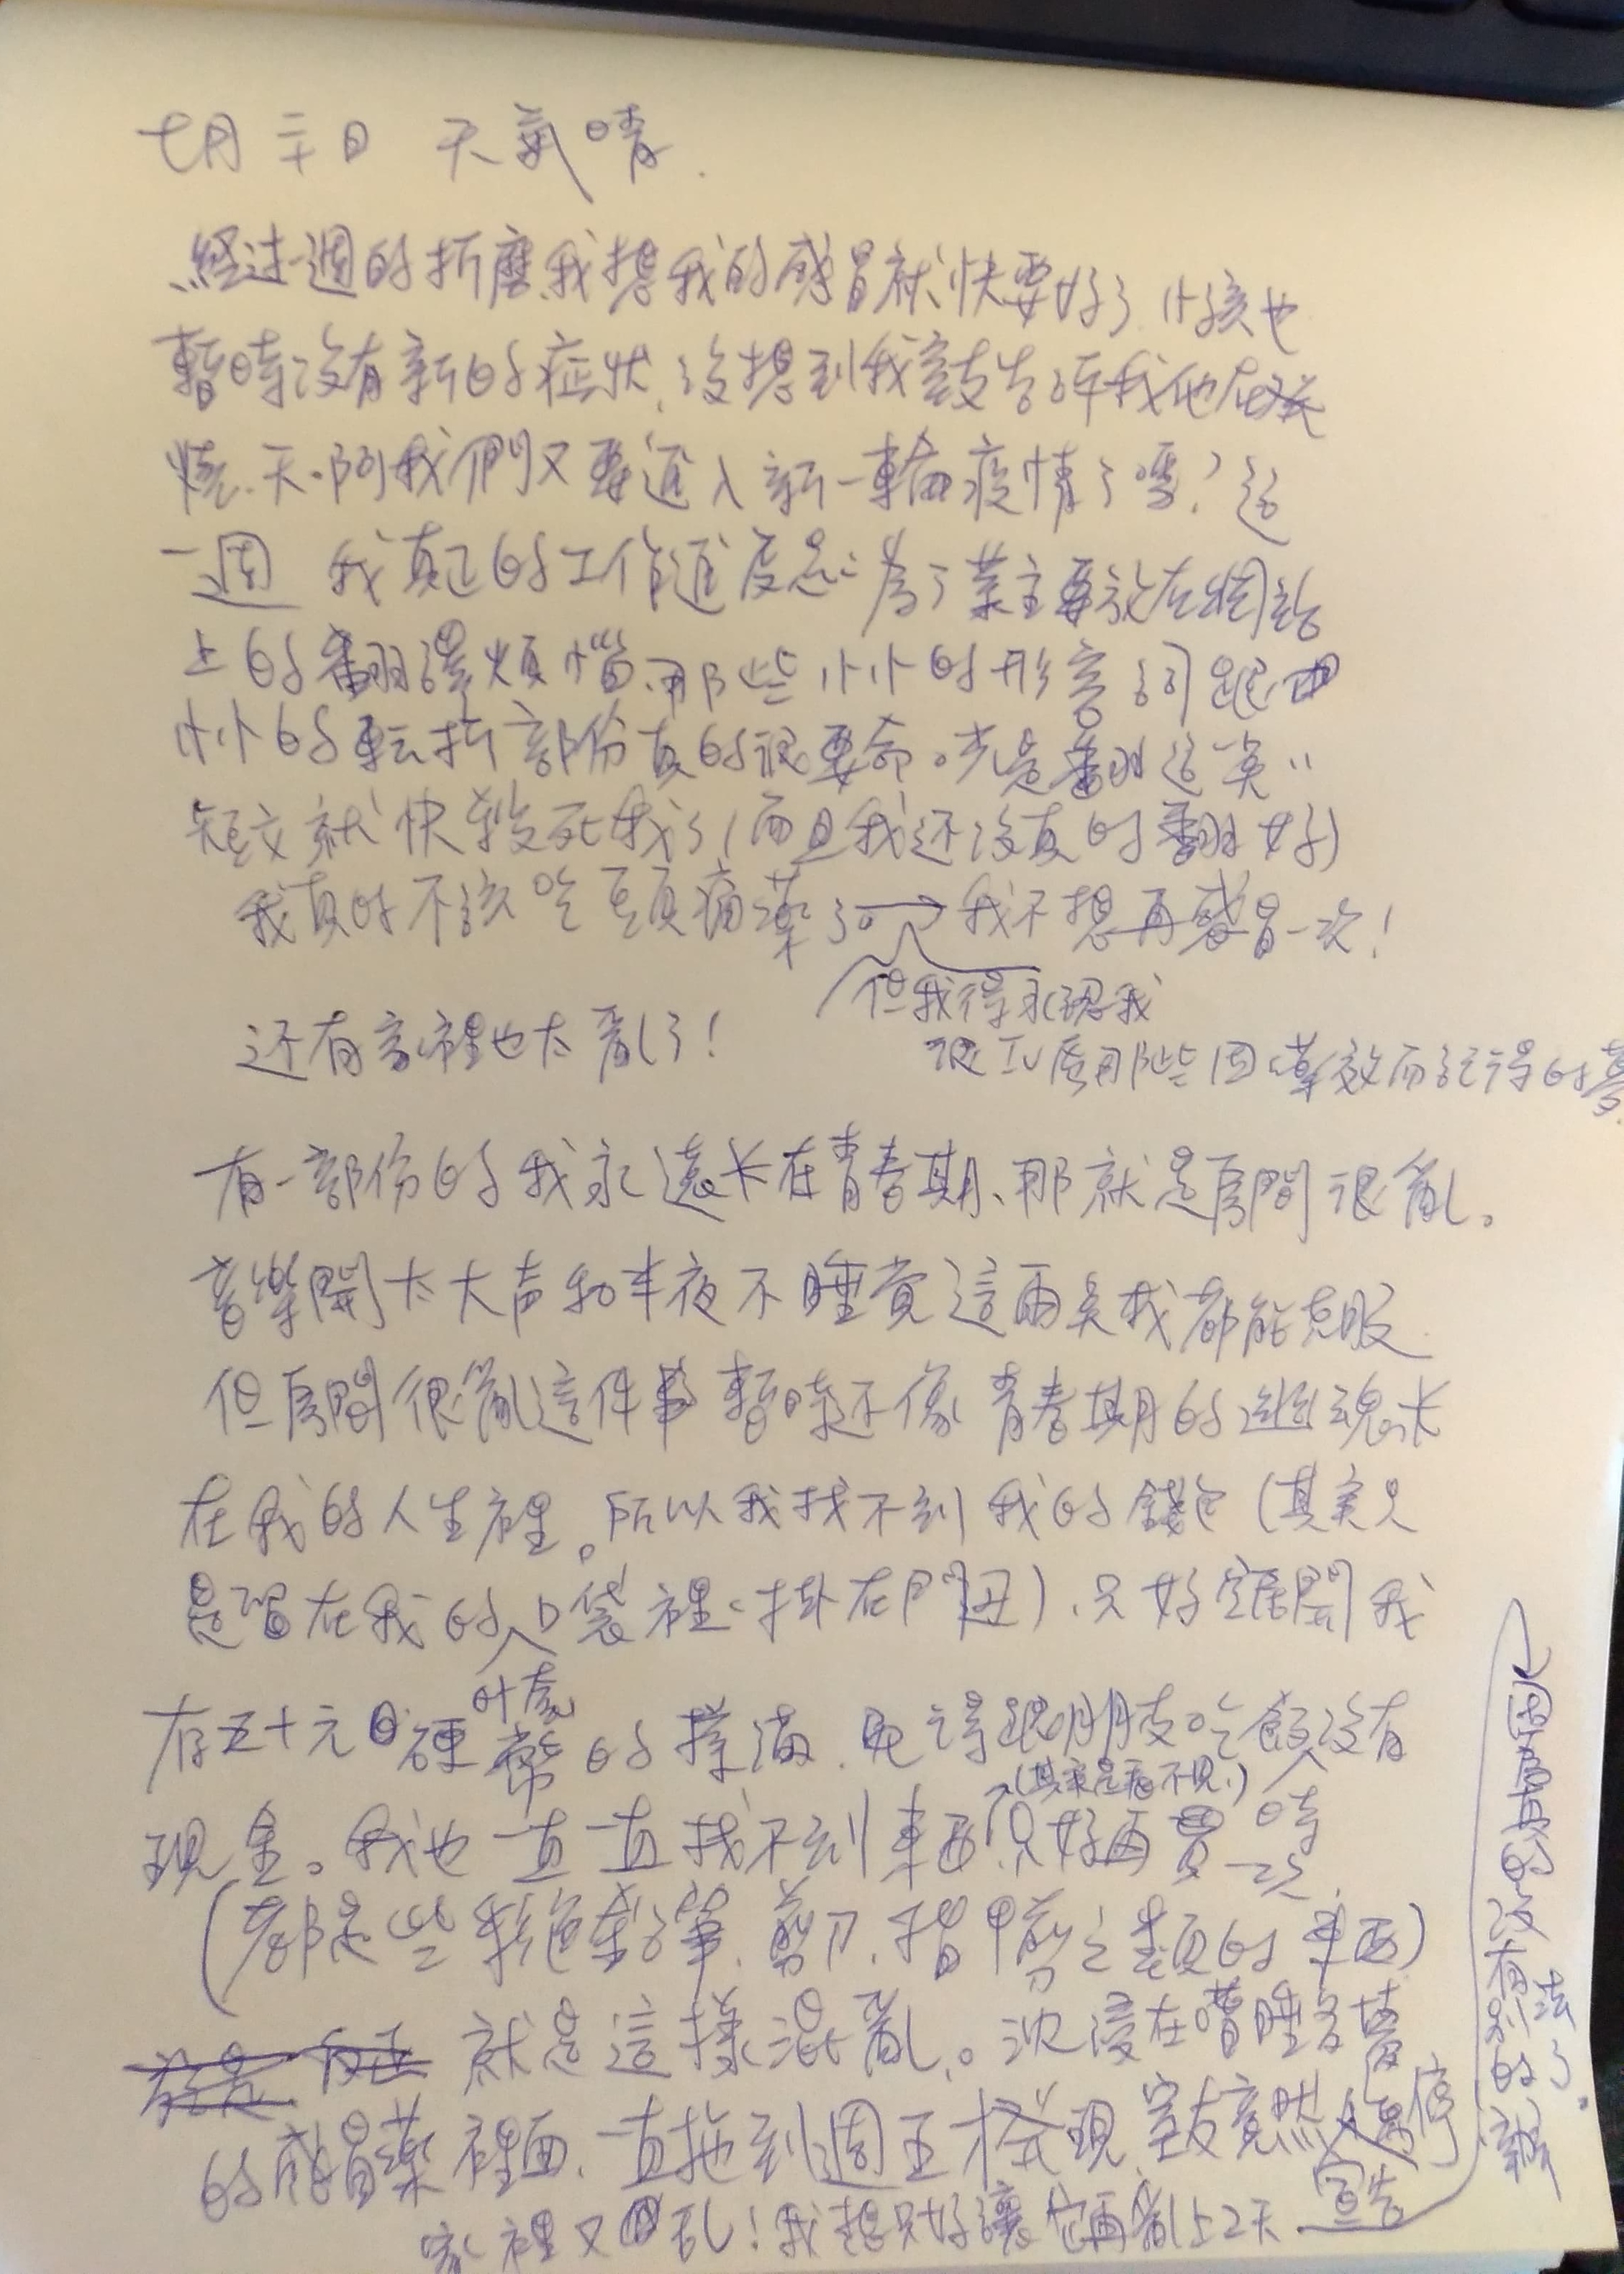 七月二十日 天氣晴.
經过一週的折磨,我想我的感冒就快要好了,小孩也
暫時沒有新的症狀,沒想到我室友告訴我他在發
燒.天啊我們又要進入新一輪疫情了嗎?這
一週 我真正的工作進度是:為了業主要放在網站
上的翻譯煩惱.那些小小的形容詞跟
小小的転折部份真的很要命。光是翻這篇
短文就快殺死我了(而且我还沒真的翻好)
我真的不該吃頭痛藥了。→我不想再感冒一次!
但我得承認我
很 那些因藥效而記得的夢
还有家裡也太亂了!
有一部份的我永遠卡在青春期、那就是房間很亂。
音樂開太大声和半夜不睡覺這兩矣我都能克服
但房間很亂這件事暫時还像青春期的幽魂卡
在我的人生裡。所以我找不到我的錢包(其实只
是留在我的外套口袋裡、掛在門边).只好 開我
存五十元硬幣的撲滿.免得跟朋友吃飯時沒有
現金。我也一直一直找不到東西(其実是看不見,)只好再買一次.
(都是些彩色鉛筆.剪刀.指甲剪之類的東西)
就是這樣混亂。沈浸在嗜睡多夢
的感冒藥裡面、一直拖到週五才發現室友竟然
家裡又 乱!我想只好讓它再亂上2天
宣告